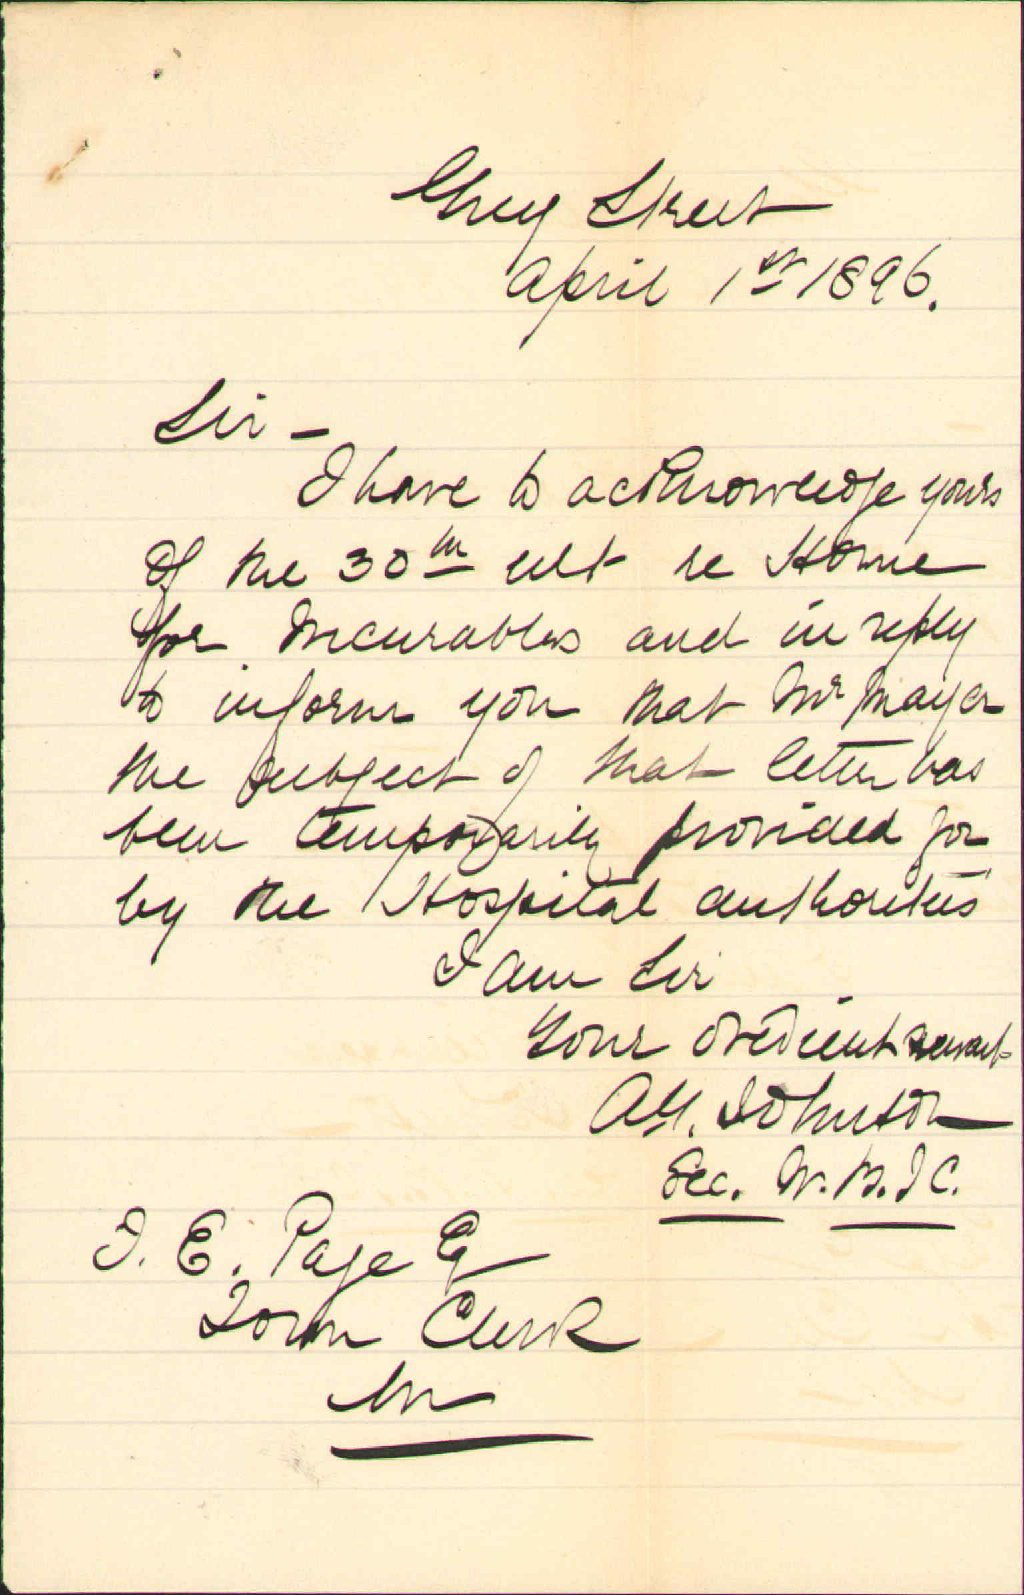 Grey Street
April 1st 1896.
Sir -
I have to acknowledge yours
of the 30th ult re Home
for Incurables and in reply
to inform you that Mr Mayer
the subject of that letter has
been temporarily provided for
by the Hospital authorities
I am Sir
Your obedient servant
A. Johnson
Sec. W. B. I C.
J. E. Page Esq
Town Clerk